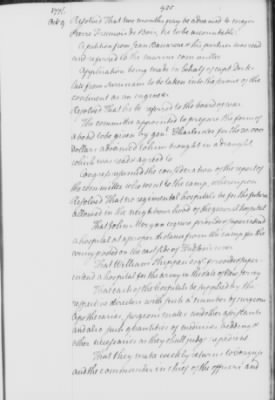 1776.
Oct 9.
Resolved That two months pay be advanced to major
Pierre Francois de Bois, he to be accountable.
A petition from Jean Baxarow & his partner was read
and referred to the marine com
Application being made in behalf of capt
late from Surinam to be taken into the service of the
continent as an engineer
Resolved That he be referred to the board of war.
The committee appointed to prepare the form of
a bond to be given by genl for the 20.000
dollars advanced to him brought in a draught,
which was read & agreed to
Congress resumed the consideration of the report of
the committee who went to the camp, whereupon
Resolved That no regimental hospitals be for the future
allowed in the neighbourhood of the general hospital
That John Morgan esqr provide & superintend
a hospital at a proper distance from the camp for the
army posted on the east side of Hudson's river
That William Shippen esqr provide & super-
intend a hospital for the army in the state of New Jersey
That each of the hospitals be supplied by the
respective directors with such a number of surgeons
apothecaries, surgeons mates and other assistants
and also such quantities of medicines bedding &
other necessaries as they shall judge expedient
That they make weekly returns to congress
and the commander in chief of the officers and